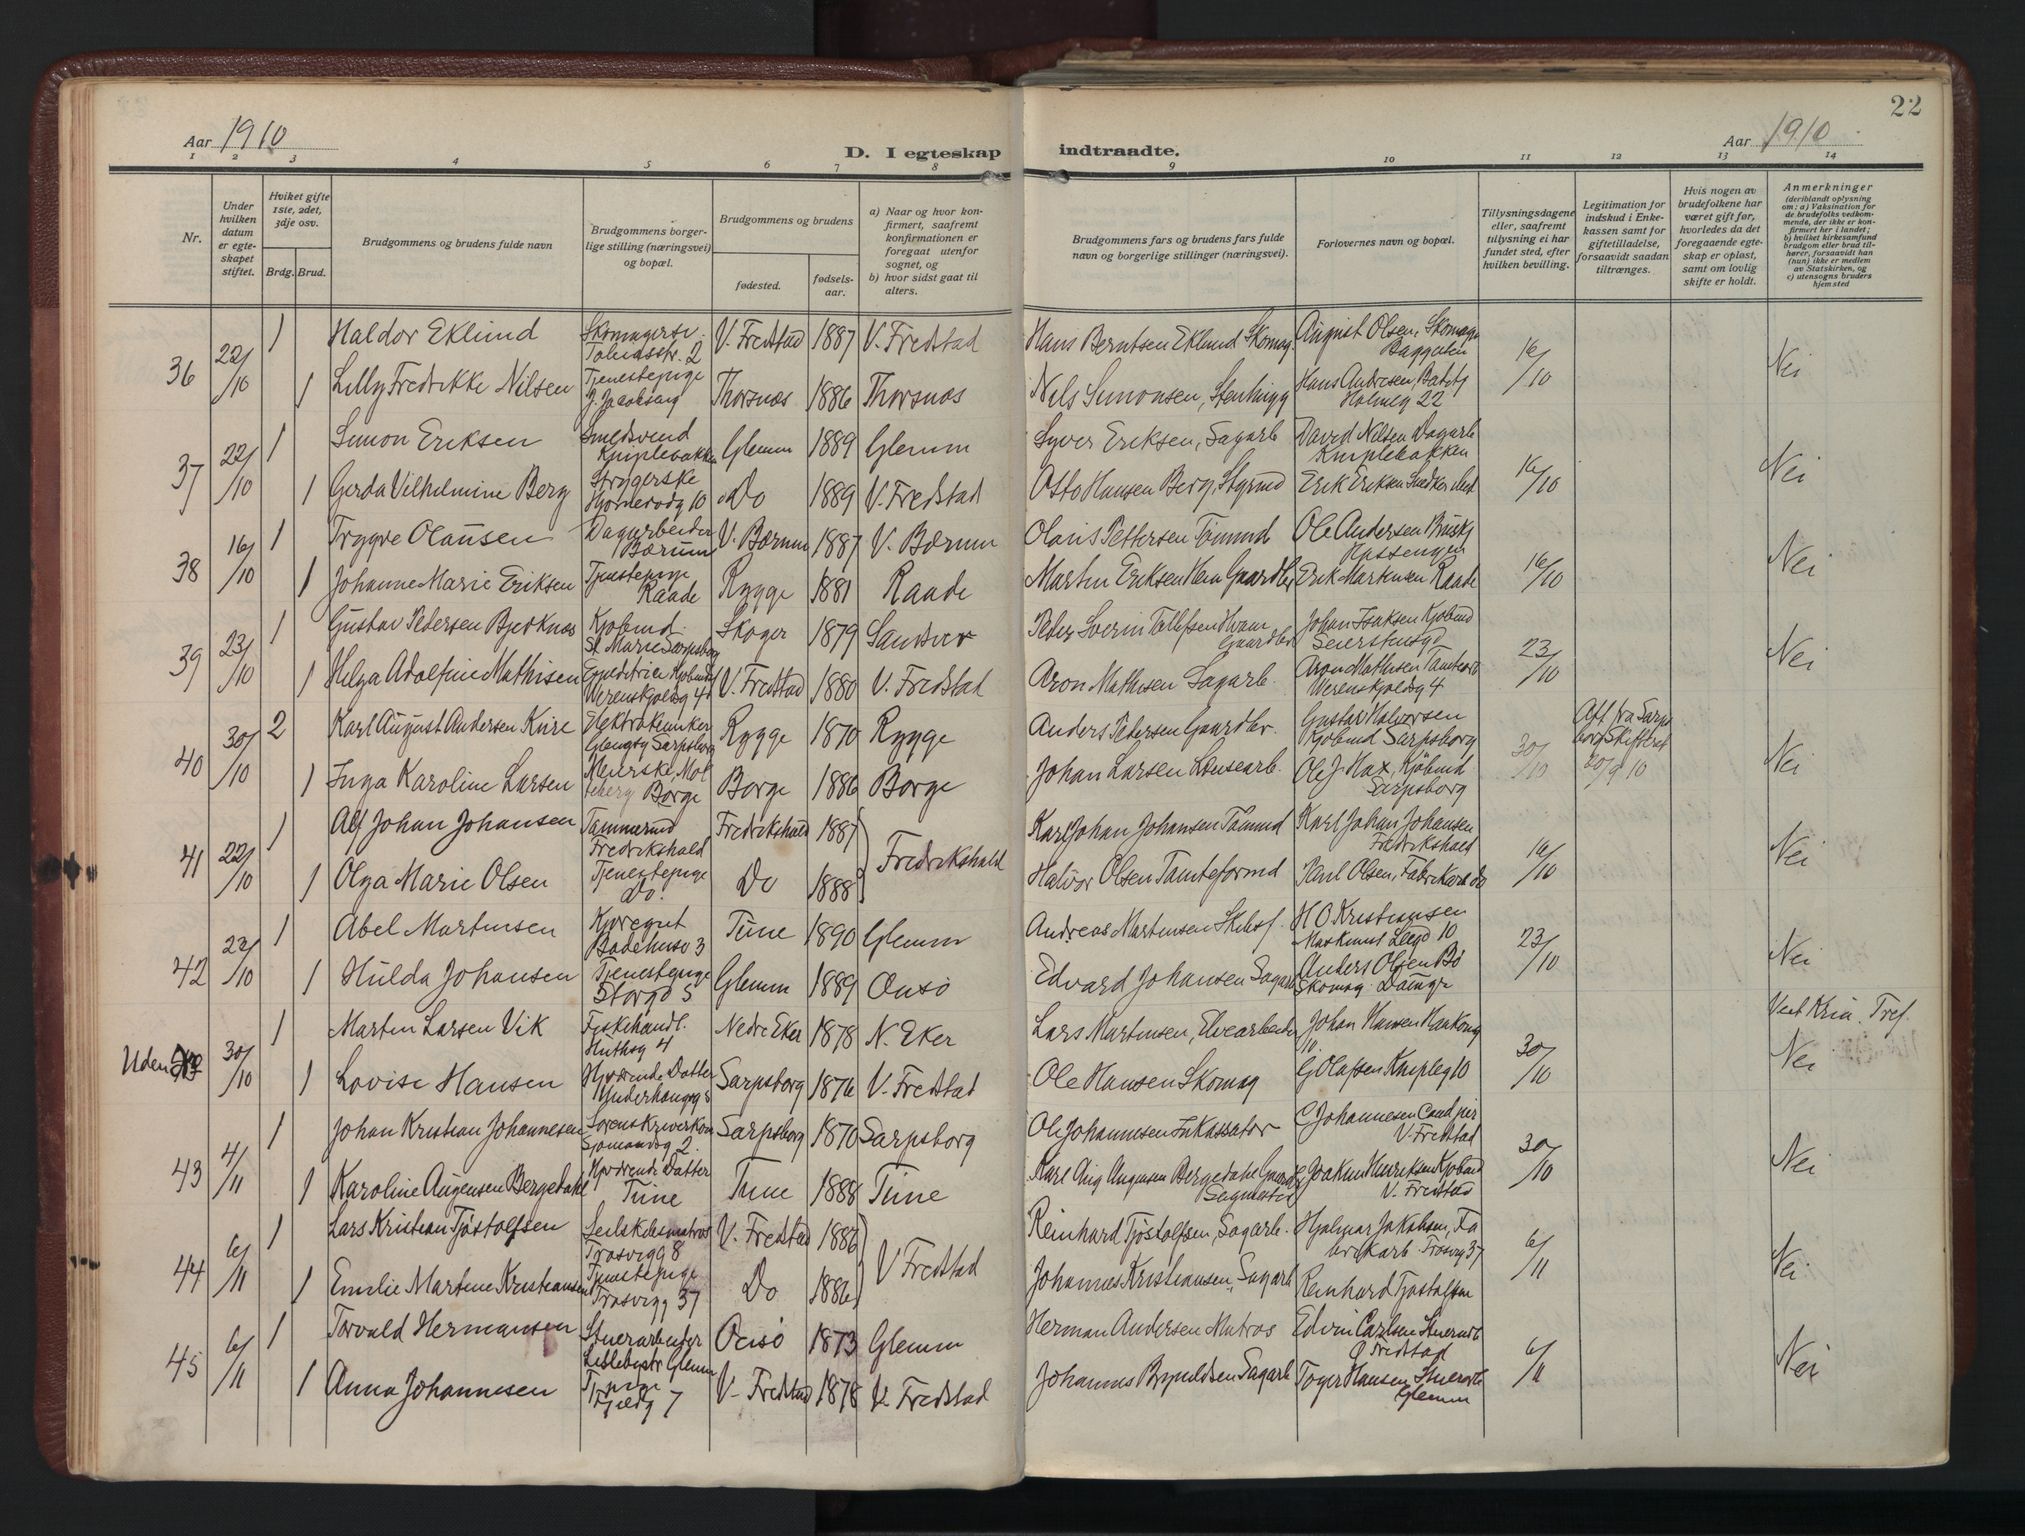 22
Aar 1910
D. I egteskap indtraadte.
Aar 1910
1 2 3 4 5 6 7 8 9 10 11 12 13 14
Nr.
Under hvilken datum er egteskapet stiftet.
Hviket gifte 1ste, 2det, 3dje osv.
Brdg. Brud.
Brudgommens og brudens fulde navn
Brudgommens borgerlige stilling (næringsvei) og bopæl.
Brudgommens og brudens
fødested.
fødselsaar.
a) Naar og hvor konfirmert, saafremt konfirmationen er foregaat utenfor sognet, og
b) hvor sidst gaat til alters.
Brudgommens fars og brudens fars fulde navn og borgerlige stillinger (næringsvei).
Forlovernes navn og bopæl.
Tillysningsdagene eller, saafremt tillysning ei har fundet sted, efter hvilken bevilling.
Legitimation for indskud i Enkekassen samt for giftetilladelse, forsaavidt saadan tiltrænges.
Hvis nogen av brudefolkene har været gift før, hvorledes da det foregaaende egteskap er opløst, samt om lovlig skifte er holdt.
Anmerkninger
(deriblandt oplysning om: a) Vaksination for de brudefolks vedkommende, der ikke er konfirmert her i landet; b) hvilket kirkesamfund brudgom eller brud tilhører, forsaavidt han (hun) ikke er medlem av Statskirken, og c) utensogns bruders hjemsted
36 22/10 1 Haldor Eklund V. Fredstad 1887 V. Fredstad Hans Berntsen Eklund Skomag. August Olsen, 16/10 Nei
1 Lilly Fredrikke Nilsen Tjenestepige Thorsnæs 1886 Thorsnæs Nils Simonsen, Hans Andresen, Holmeg 22
37 22/10 1 Simon Eriksen Smedsvend Kniplebakken Glemm 1889 Glemm Syver Eriksen, Sagarb David Nilsen Dagarb Kniplebakken 16/10 Nei
1 Gerda Vilhelmine Berg Strygerske Do 1889 V. Fredstad Otto Hansen Berg, Styrmd Erik Eriksen
38 16/10 1 Trygve Olausen Dagarbeider Bærum V. Bærum 1887 V. Bærum Olaus Pettersen Tømmd Ole Andersen 16/10 Nei
1 Johanne Marie Eriksen Tjenestepige Raade Rygge 1881 Raade Martin Eriksen Gaardbr Erik Martinsen Raade
39 23/10 1 Gustav Pedersen Bjerknæs Kjøbmd. St. Marie Sarpsborg Skoger 1879 Sandsvær Peder Severin Tollefsen Gaardbr Johan Isaksen Kjøbmd 23/10 Nei
1 Helga Adolfine Mathisen Werenskjoldsg 4 V. Fredstad 1880 V. Fredstad Aron Mathisen Sagarb. Aron Mathisen Werenskjoldsg 4
40 30/10 2 Karl August Andersen Kure Sarpsborg Rygge 1870 Rygge Anders Pedersen Gaardbr. Gustav Halvorsen Kjøbmd Sarpsborg 30/10 Att fra Sarpsborg Skifteret 20/9 10 Nei
1 Inga Karoline Larsen Meierske, Borge Borge 1886 Borge Johan Larsen Lensearb. Ole J. Hax, Kjøbmd Sarpsborg
41 22/10 1 Alf Johan Johansen Tømmermd Fredrikshald Fredrikshald 1887 Fredrikshald Karl Johan Johansen Tømmd Karl Johan Johansen Fredrikshald 16/10 Nei
1 Olga Marie Olsen Tjenestepige Do. Do 1888 Halvor Olsen Tomteformd Paul Olsen, Fabrikarb do
42 22/10 1 Abel Martinsen Kjøregut Tune 1890 Glemm Andreas Martinsen H O Kristiansen 23/10 Nei
1 Hulda Johansen Tjenestepige Storgd 5 Glemm 1889 Onsø Edvard Johansen Sagarb Anders Olsen Bø Skomag.
Uden No 30/10 1 Martin Larsen Vik Fiskehandl. Nedre Eker 1878 N. Eker Lars Martinsen, Elvearbeider Johan Hansen 30/10 Nei
1 Lovise Hansen Hjværende Datter Sarpsborg 1876 V. Fredstad Ole Hansen Skomag G Olafsen Knipleg 10
43 4/11 1 Johan Kristian Johannesen Sarpsborg 1870 Sarpsborg Ole Johannesen Inkassator C Johannesen V. Fredstad 30/10 Nei
1 Karoline Augensen Bergedahl Hjværende Datter Tune Tune 1888 Tune Karl Aug Augensen Bergedahl Joakim Henriksen Kjøbmd V. Fredstad
44 6/11 1 Lars Kristian Tjøstolfsen Seilskibsmatros Trosvigg 8 V. Fredstad 1886 V Fredstad Reinhard Tjøstolfsen, Sagarb. Hjalmar Jakobsen, Fabrikarb. Trosvig 37 6/11 Nei
1 Emilie Martine Kristiansen Tjenestepige Trosvigg 37 Do 1886 Johannes Kristiansen, Sagarb Reinhard Tjøstolfsen
45 6/11 1 Torvald Hermansen Stuerarbeider Glemm Onsø 1873 Glemm Herman Andersen Matros Edvin Carlsen Fredstad 6/11 Nei
1 Anna Johannesen V. Fredstad 1878 V. Fredstad Johannes Sagarb Hansen Glemm